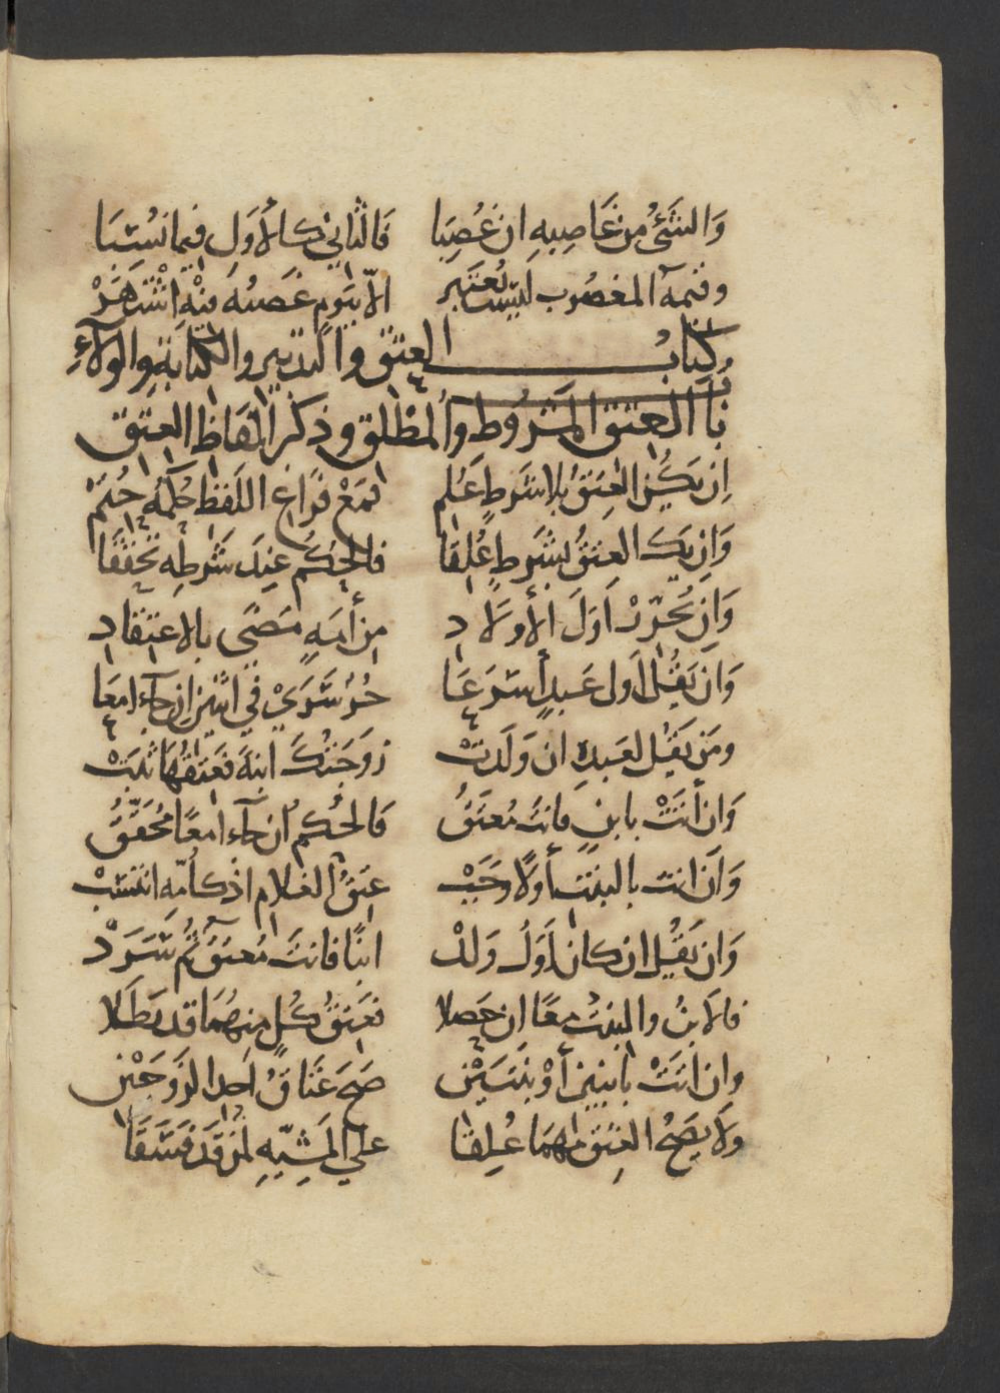 وَالشَّئُ مِن غَاصِبِهِ ان غُصِبَا فَالثاني كالأَوَلِ فيما نُسِبَا
وقيمة المغصُوب ليسَت تُعتَبر الاّ بيَوم غَصبه مِنْهِ اشْتَهَرْ
كتابُ العتق والتدبير والكتابة والولآءِ
بَابُ العتق المَشرُوط وَالمُطْلق وذكر الفَاظ العتق
اِن يَكُن العِتقُ بلا شَرطٍ عَلم فمَعْ فرَاغ اللفظ حُكمُه حُتمْ
وَاِن يَك العِتقُ بشَرطٍ عُلِقَا فالحُكم عِندَ شَرطِه تَحَقَّقَا
وَاِن يُحَرّرْ اَوَلَ الأولاد مِن أمَةٍ مَضَى بالاعتقاد
وَان يَقُل اَول عَبدٍ أسرَعَا حُرٌ سَرَيْ في اثنين ان جآءا معَا
ومَن يَقُل لعَبدِهِ ان وَلَدتْ زوَجَتُكَ ابنَة فَعتقُهَا ثَبَتْ
وَان أتَتْ بابنٍ فانتَ مُعتَقُ فَالحُكم اُن جآءا معًا مُحَقَّقُ
وَاَن اتت بالبِنتِ أولًا وَجَبْ عتقُ الغلام اذ كأمّه انتسَبْ
وَان يَقُل ان كان اَوَلُ وَلدْ ابنًا فانتَ مُعتَقٌ ثُم سَرَدْ
فالابنُ والبِنتُ مَعًا ان حَصلا فعَتقُ كُلٍ مِنهُمَا قد بَطَلا
وان اتَتْ بابنين أوْ بنتَيْن صَحَ عَتَاقُ اَحد الزَوجَيْن
ولَا يصَحُ العِتق مهمَا عُلِقَا علي المَشِيّهِ لمن قَد فسَقَا